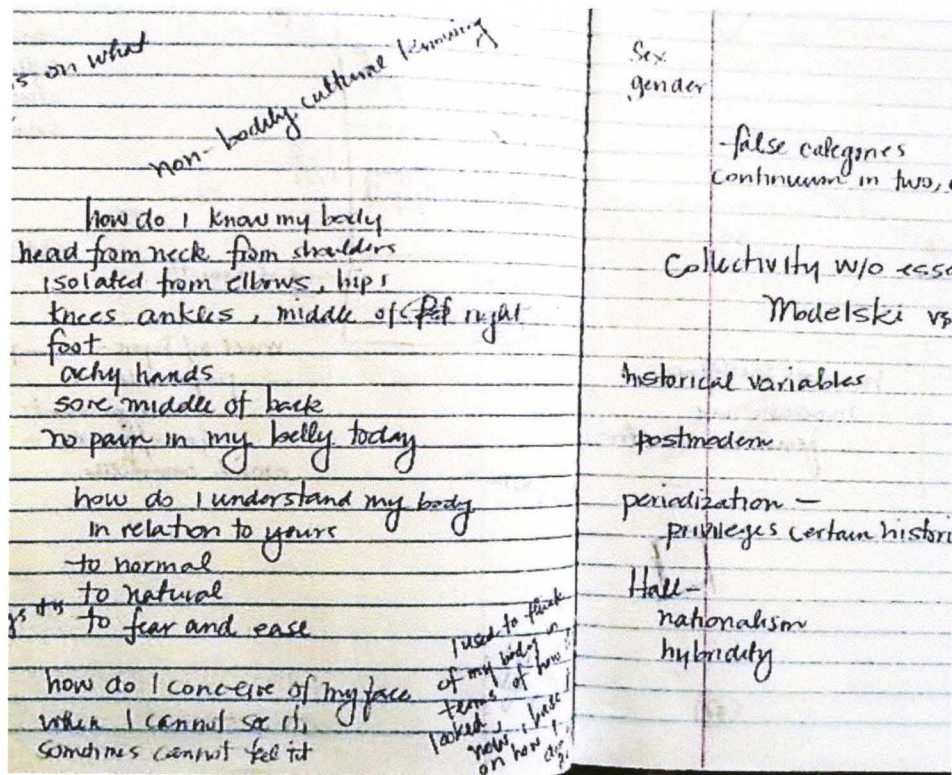 is on what
non-bodily cultural knowing
how do I know my body
head from neck from shoulders
isolated from elbows, hips
knees ankles, middle of right
foot
achy hands
sore middle of back
no pain in my belly today
how do I understand my body
in relation to yours
to normal
to natural
to fear and ease
how do I conceive of my face
when I cannot see it,
sometimes cannot feel it
I used to think
of my body in
terms of how I
looked,
now I base
on how I
Sex
gender
-false categories
continuum in two,
Collectivity w/o esse
Modelski vs
historical variables
postmodern
periodization -
privileges certain histori
Hall-
nationalism
hybridity